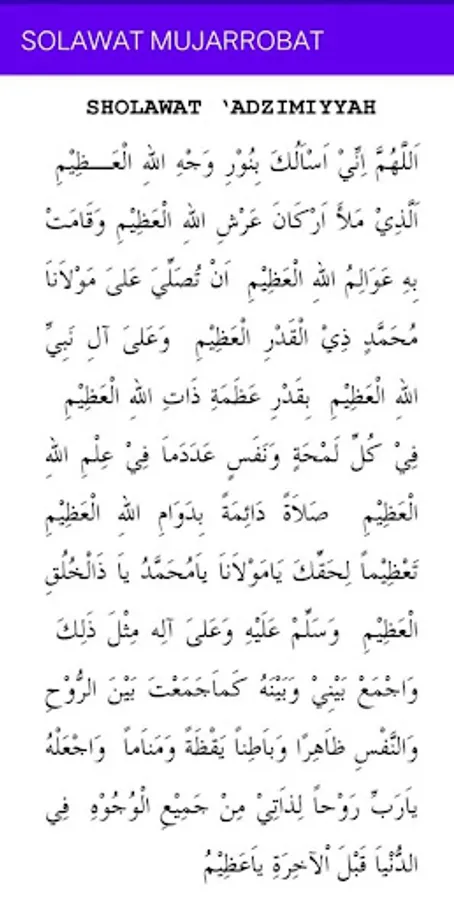 SOLAWAT MUJARROBAT
SHOLAWAT ‘ADZIMIYYAH
اَللَّهُمَّ اِنِّيْ اَسْاَلُكَ بِنُوْرِ وَجْهِ اللهِ الْعَـــظِيْمِ
اَلَّذِيْ مَلَأَ اَرْكَانَ عَرْشِ اللهِ الْعَظِيْمِ وَقَامَتْ
بِهِ عَوَالِمُ اللهِ الْعَظِيْمِ اَنْ تُصَلِّيَ عَلىَ مَوْلَاناَ
مُحَمَّدٍ ذِيْ الْقَدْرِ الْعَظِيْمِ وَعَلىَ آلِ نَبِيِّ
اللهِ الْعَظِيْمِ بِقَدْرِ عَظَمَةِ ذَاتِ اللهِ الْعَظِيْمِ
فِيْ كُلِّ لَمْحَةٍ وَنَفَسٍ عَدَدَماَ فِيْ عِلْمِ اللهِ
الْعَظِيْمِ صَلاَةً دَائِمَةً بِدَوَامِ اللهِ الْعَظِيْمِ
تَعْظِيْماً لِحَقِّكَ يَامَوْلاَناَ ياَمُحَمَّدُ ياَ ذَالْخُلُقِ
الْعَظِيْمِ وَسَلِّمْ عَلَيْهِ وَعَلىَ آلِه مِثْلَ ذَلِكَ
وَاجْمَعْ بَيْنِيْ وَبَيْنَهُ كَماَجَمَعْتَ بَيْنَ الرُّوْحِ
وَالنَّفْسِ ظَاهِرًا وَباَطِناً يَقْظَةً وَمَناَماً وَاجْعَلْهُ
ياَرَبِّ رَوْحاً لِذاَتِيْ مِنْ جَمِيْعِ الْوُجُوْهِ فِي
الدُّنْياَ قَبْلَ اْلآخِرَةِ ياَعَظِيْمُ